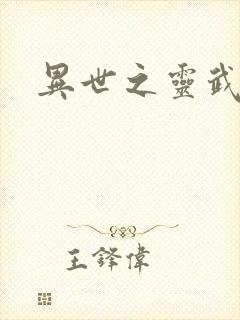 異世之靈武
王鋒偉